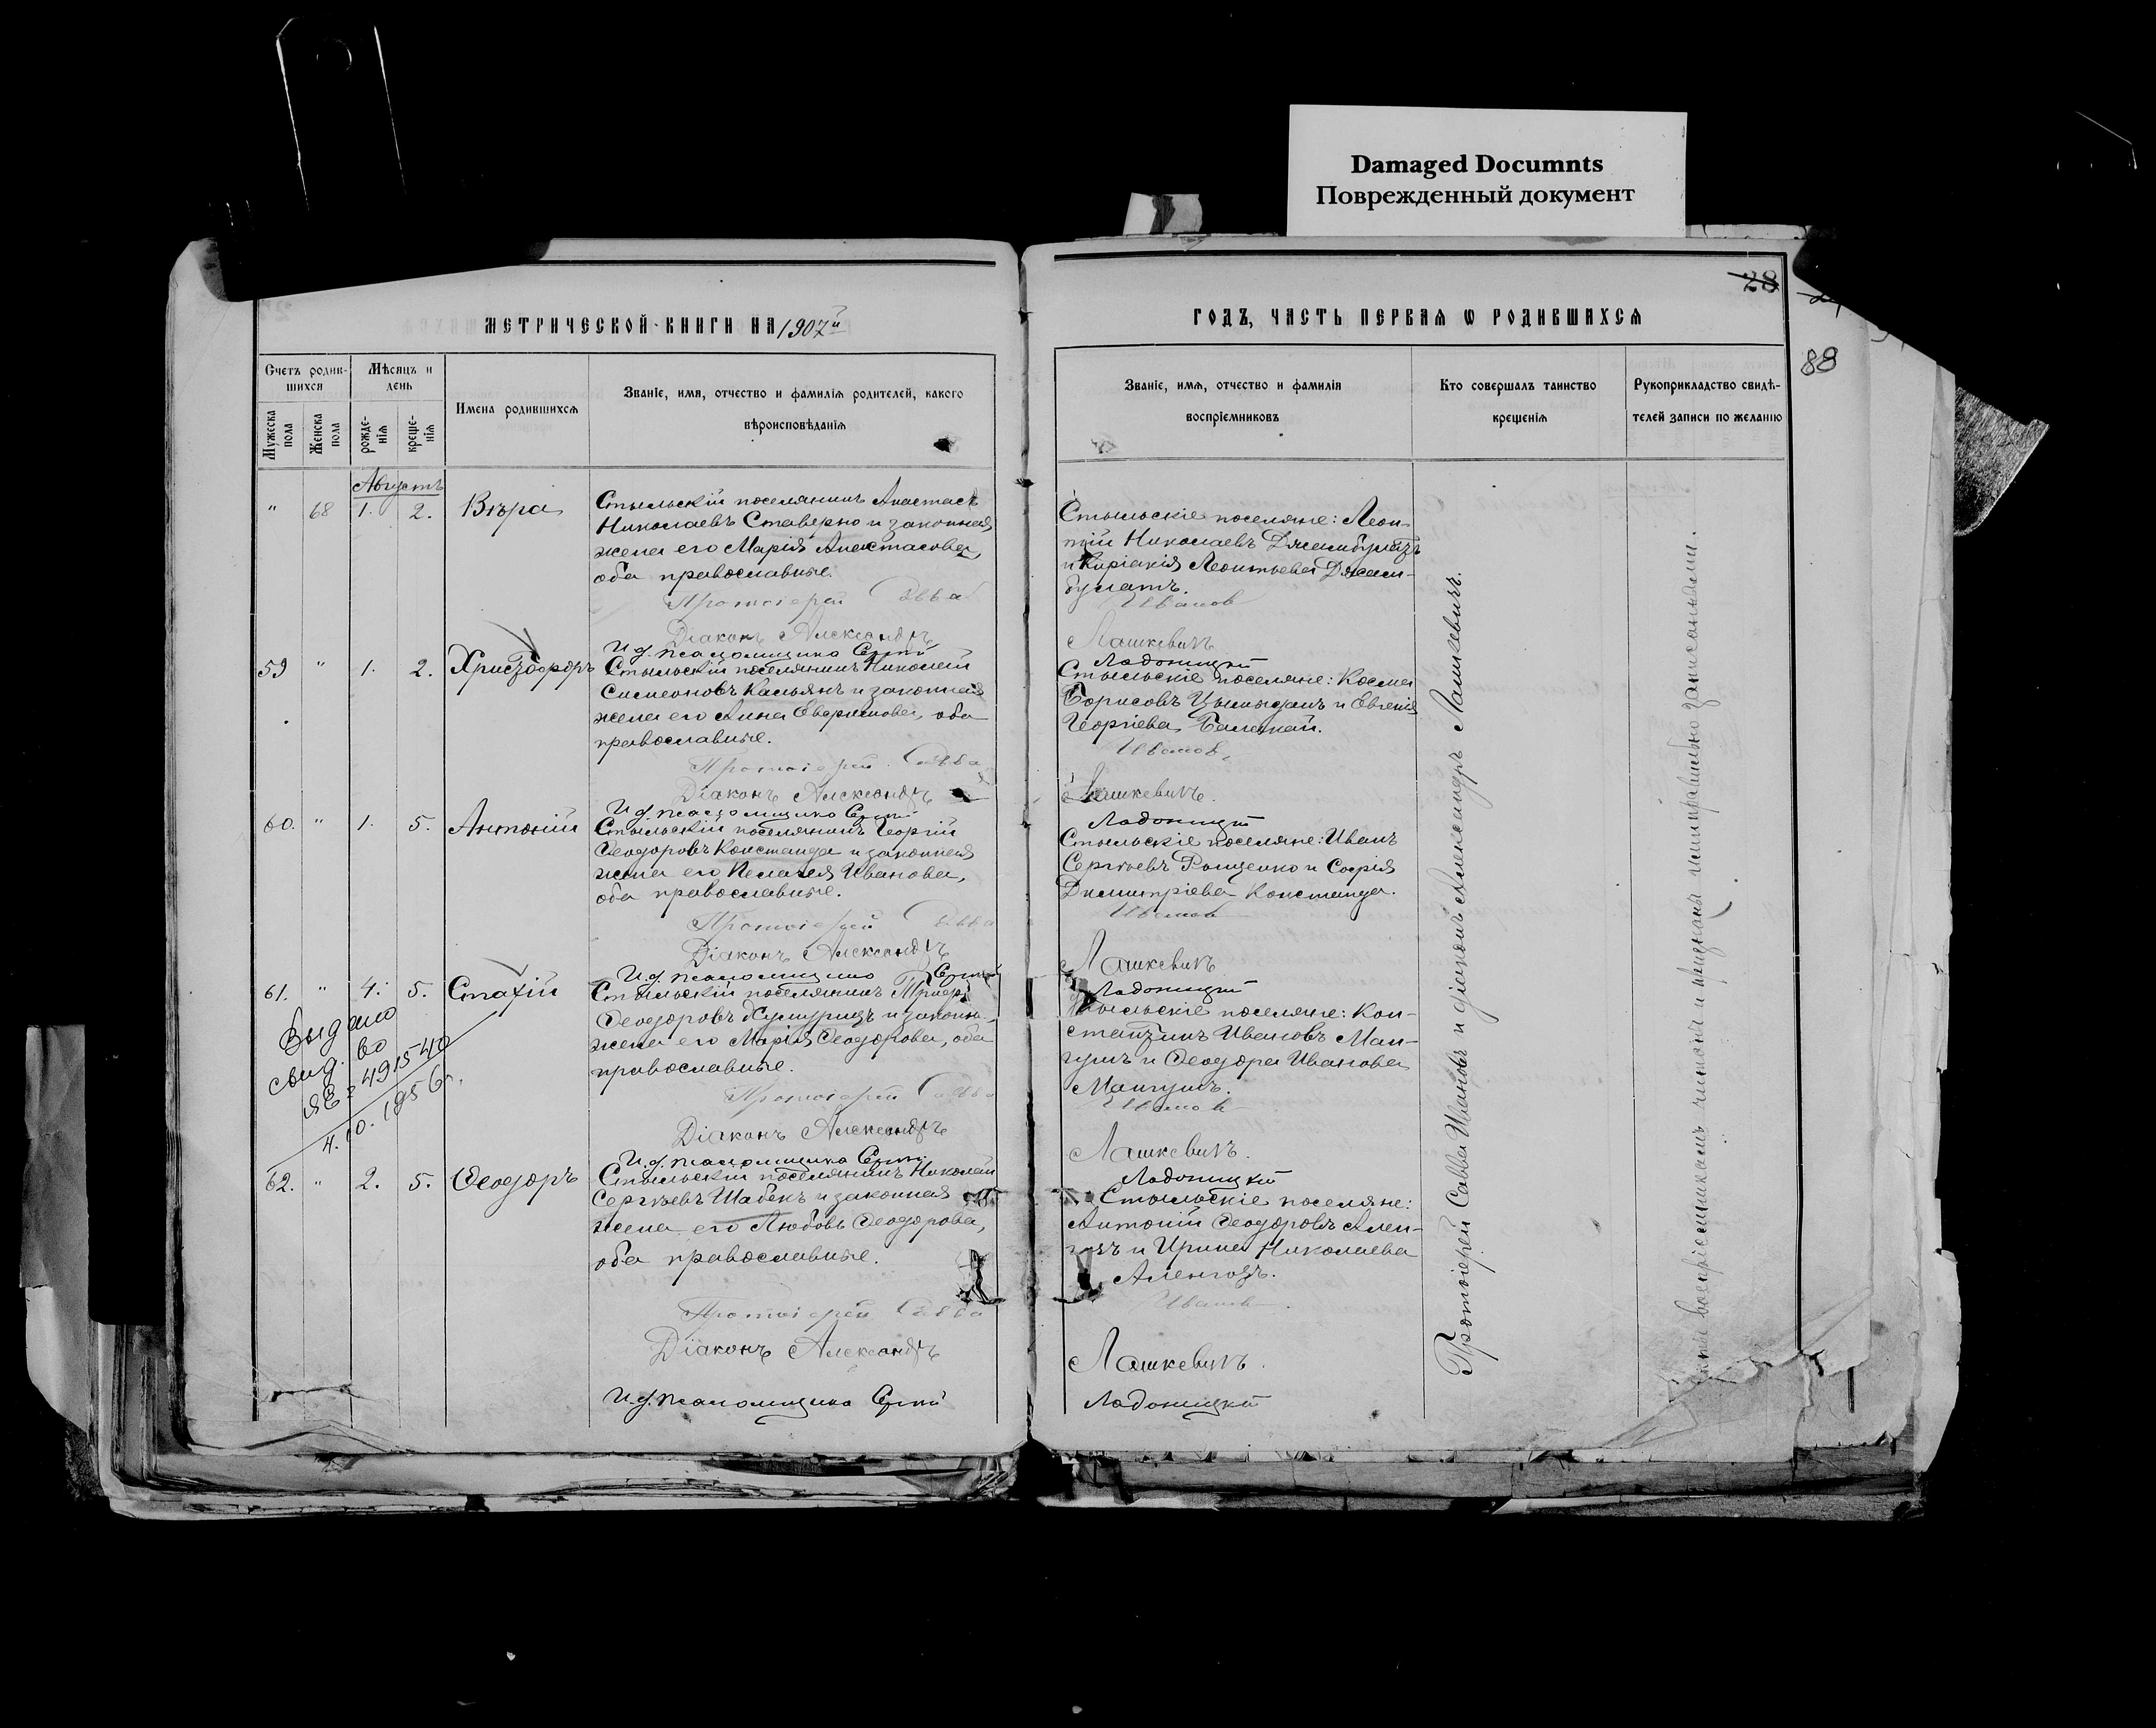 Damaged Documnts
Поврежденный документ
28
88
МЕТРИЧЕСКОЙ КНИГИ НА 1907й
ГОДЪ, ЧАСТЬ ПЕРВАЯ Ѡ РОДИВШИХСЯ
Счетъ родив-
шихся
Мѣсяцъ и
день
Мужеска
пола
Женска
пола
рожде-
нія
креще-
нія
Имена родившихся
Званіе, имя, отчество и фамилія родителей, какого
вѣроисповѣданія
Званіе, имя, отчество и фамилія
воспріемниковъ
Кто совершалъ таинство
крещенія
Рукоприкладство свидѣ-
телей записи по желанію
Августъ
" 68 1. 2. Вѣра
Стыльскій поселянинъ Анастасъ
Николаевъ Ставерно и законная
жена его Марія Анастасова,
оба православные.
Стыльскіе поселяне: Леон-
тій Николаевъ Джамбулатъ
и Киріакія Леонтьева Джам-
булатъ.
Протоіерей Савва Иванов
Діаконъ Александръ Лашкевичъ
И.д. псаломщика Ладоницкій
59 " 1. 2. Христофоръ
Стыльскій поселянинъ Николай
Симеоновъ Касьянъ и законная
жена его Анна Евфимова, оба
православные.
Стыльскіе поселяне: Косма
Борисовъ и Евгенія
Георгіева
Протоіерей Савва Иванов
Діаконъ Александръ Лашкевичъ.
И.д. псаломщика Ладоницкій
60. " 1. 5. Антоній
Стыльскій поселянинъ Георгій
Ѳеодоровъ Константа и законная
жена его Пелагея Иванова,
оба православные.
Стыльскіе поселяне: Иванъ
Сергѣевъ Рощенко и Софія
Димитріева Константа.
Протоіерей Савва Иванов
Діаконъ Александръ Лашкевичъ
И.д. псаломщика Ладоницкій
61. " 4. 5. Стахій
Стыльскій поселянинъ
Ѳеодоровъ и законн.
жена его Марія Ѳеодорова, оба
православные.
Стыльскіе поселяне: Кон-
стантинъ Ивановъ Ман-
гушъ и Ѳеодора Иванова
Мангушъ.
Выдано
свид. во
ЯЕ 491540
4.10.1956г.
Протоіерей Савва Иванов
Діаконъ Александръ Лашкевичъ.
И.д. псаломщика Ладоницкій
62. " 2. 5. Ѳеодоръ
Стыльскій поселянинъ Николай
Сергѣевъ Шабекъ и законная
жена его Любовь Ѳеодорова,
оба православные.
Стыльскіе поселяне:
Антоній Ѳеодоровъ Ален-
гозъ и Ирина Николаева
Аленгозъ.
Протоіерей Савва Иванов
Діаконъ Александръ Лашкевичъ.
И.д. псаломщика Ладоницкій
Протоіерей Савва Ивановъ и діаконъ Александръ Лашкевичъ.
воспріемникамъ читаны и признаны ими правильно записанными.